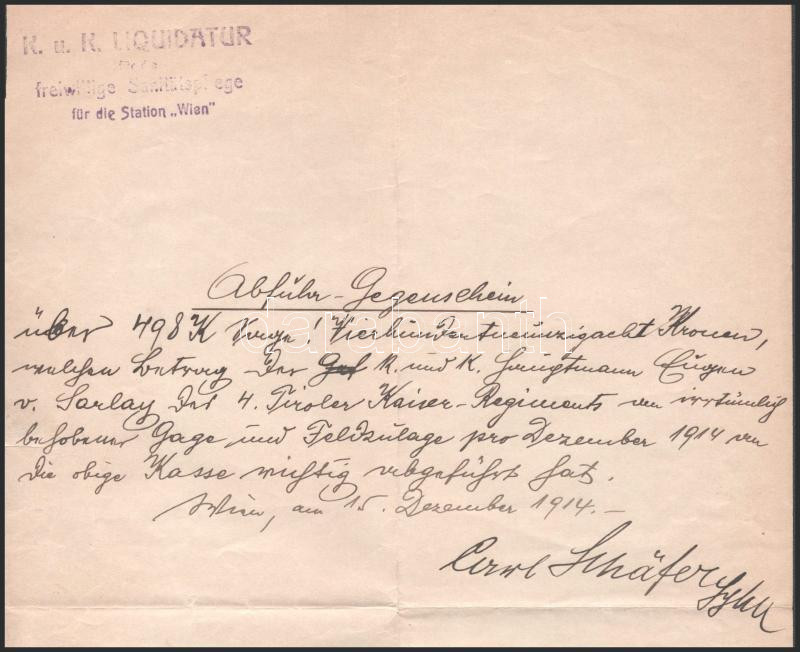 K. u. K. LIQUIDATUR
für die
freiwillige Sanitätspflege
für die Station „Wien"
Abfuhr-Gegenschein
über 498 K sage! Vierhundertneunzigacht Kronen,
welchen Betrag der K. und K. Hauptmann Eugen
v. Sarlay des 4. Tiroler Kaiser-Regiments an irrtümlich
behobener Gage und Feldzulage pro Dezember 1914 an
die obige Kasse richtig abgeführt hat.
Wien, am 15. Dezember 1914.-
Carl Schäfer
darabanth